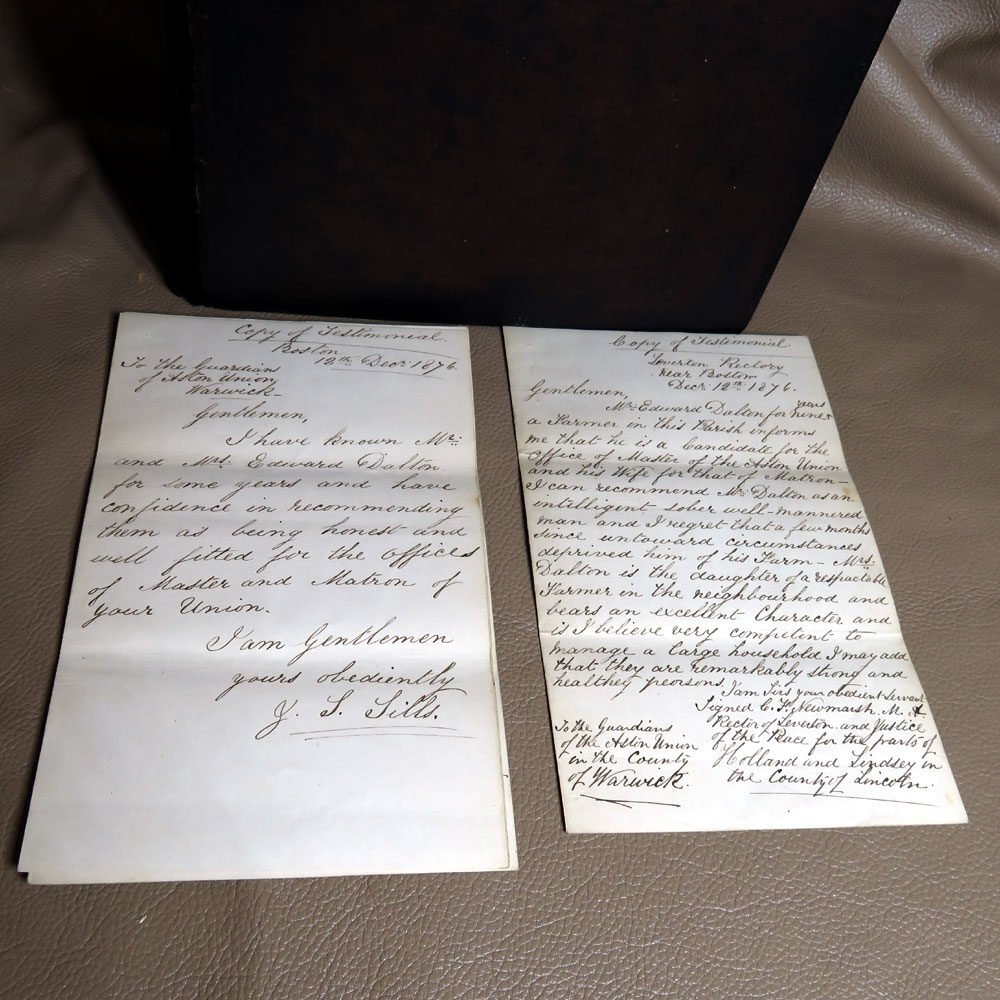 Copy of Testimonial.
Boston
12th Decr 1876.
To the Guardians
of Aston Union
Warwick—
Gentlemen,
I have known Mr.
and Mrs. Edward Dalton
for some years and have
confidence in recommending
them as being honest and
well fitted for the offices
of Master and Matron of
your Union.
I am Gentlemen
yours obediently
J. S. Sills.
Copy of Testimonial.
Leverton Rectory
near Boston
Decr 12th 1876.
Gentlemen,
years
Mr. Edward Dalton for nine
a Farmer in this Parish informs
me that he is a Candidate for the
Office of Master of the Aston Union
and his Wife for that of Matron—
I can recommend Mr. Dalton as an
intelligent sober well-mannered
man and I regret that a few months
since untoward circumstances
deprived him of his Farm— Mrs.
Dalton is the daughter of a respectable
Farmer in the neighbourhood and
bears an excellent Character and
is I believe very competent to
manage a large household I may add
that they are remarkably strong and
healthy peorsons.
I am Sirs your obedient Servant
Signed C. F. Newmarsh. M. A
Rector of Leverton and Justice
of the Peace for the parts of
Holland and Lindsey in
the County of Lincoln.
To the Guardians
of the Aston Union
in the County
of Warwick.